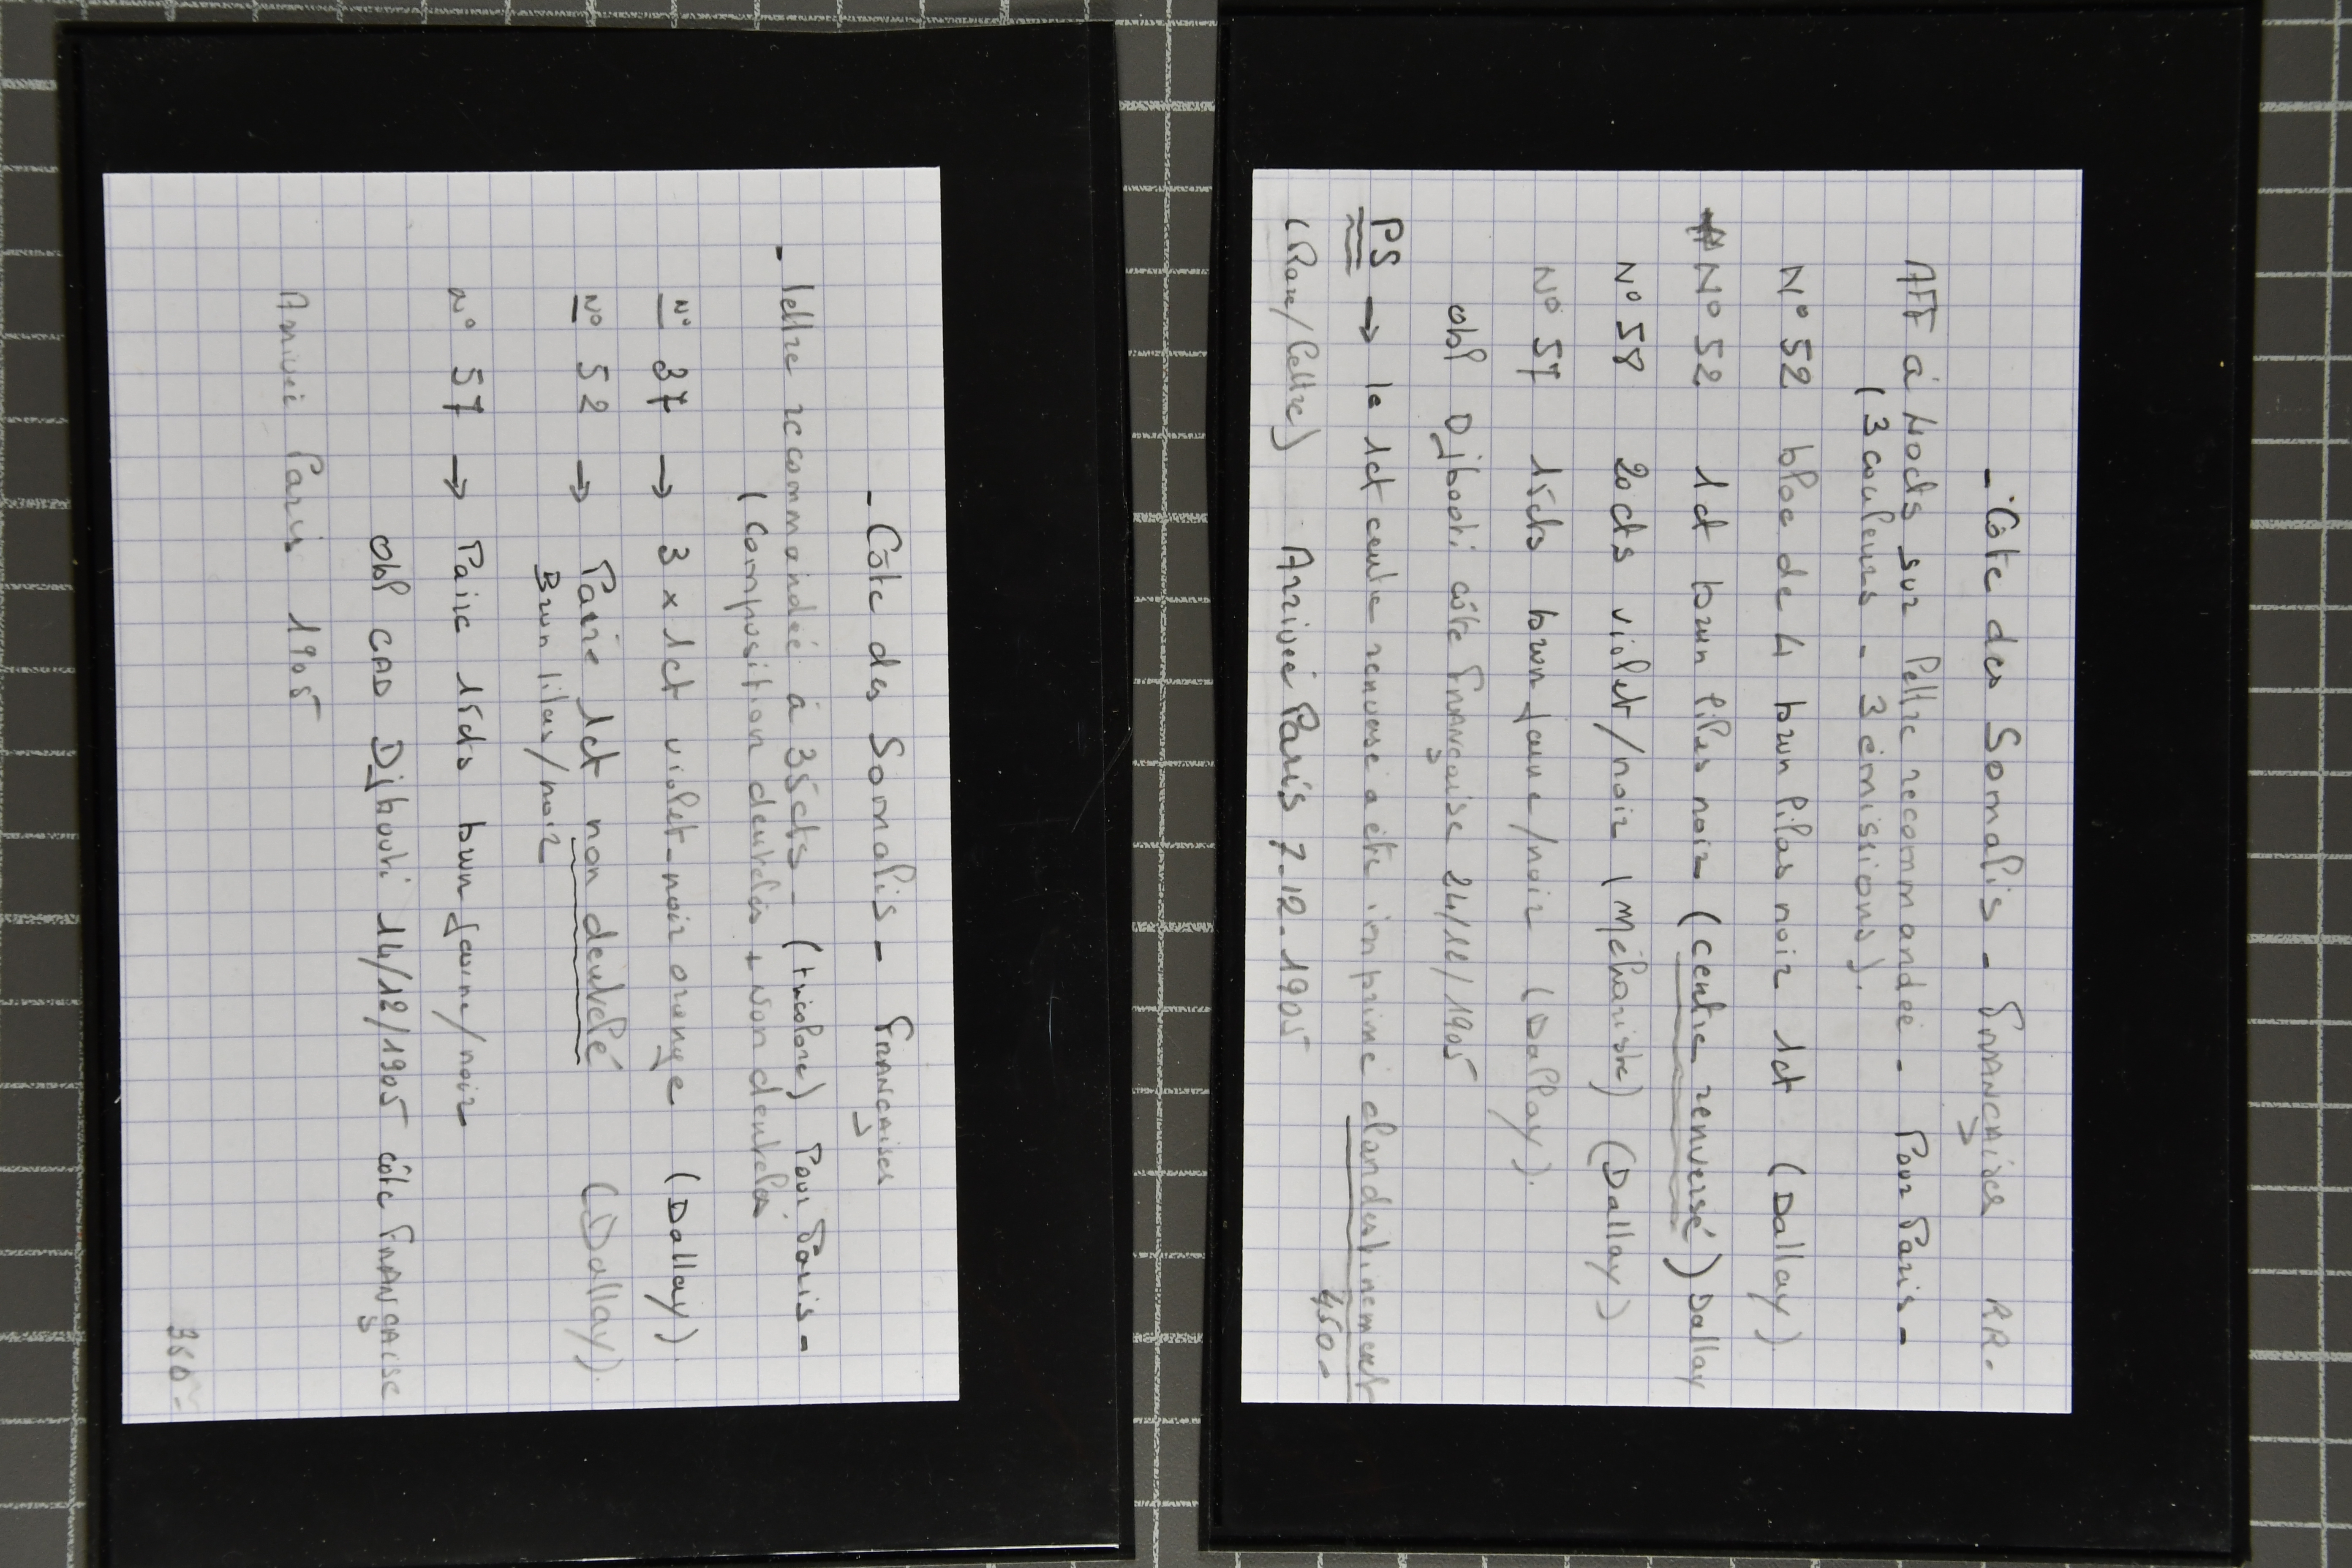 - Côte des Somalis - FRANÇAises
- lettre recommandée à 35cts - (tricolore) Pour Paris -
(Composition dentelés + Non dentelés
N° 37 → 3 x 1ct violet-noir orange (Dallay).
N° 52 → Paire 1ct non dentelé (Dallay).
Brun lilas/noir
N° 57 → Paire 15cts brun jaune/noir
Obl CAD Djibouti 14/12/1905 côte FRANÇAISE
Arrivée Paris 1905
350-
- Côte des Somalis - FRANÇAises RR.
AFF à 40cts sur lettre recommandée - Pour Paris -
(3 couleurs - 3 émissions).
N° 52 bloc de 4 brun lilas noir 1ct (Dallay).
N° 52 1ct brun lilas noir (centre renversé) Dallay
N° 58 20cts violet/noir (Méhariste) (Dallay)
N° 57 15cts brun jaune/noir (Dallay).
obl Djibouti côte Française 24/12/1905
PS → le 1ct centre renversé a été imprimé clandestinement
(Rare/lettre) Arrivée Paris 7-12-1905
450-